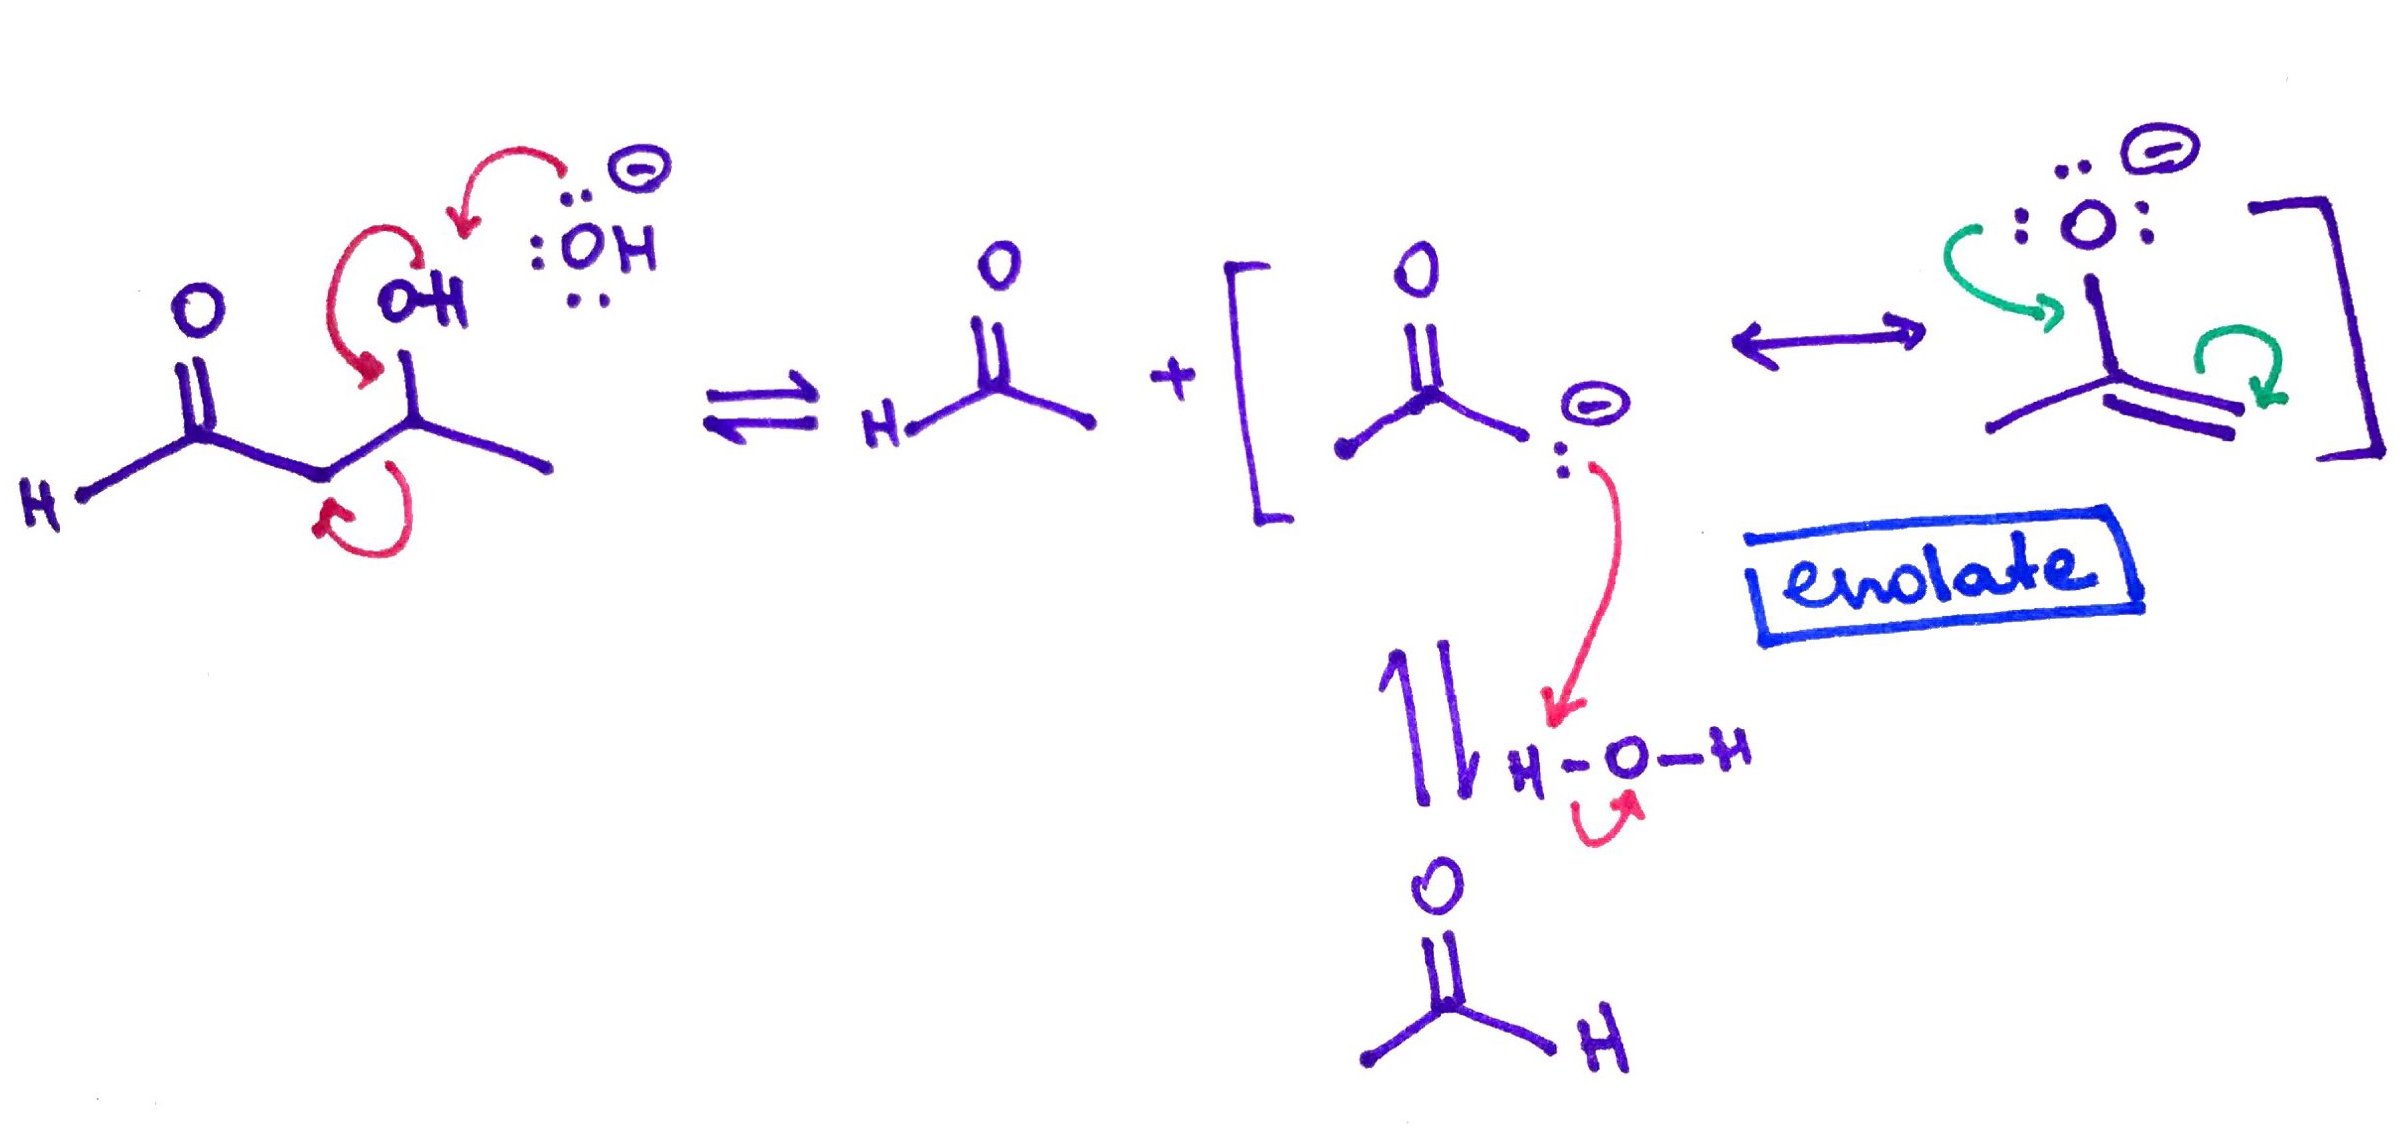 ⊖
:ÖH
O OH
H
O
H + [
O
⊖
:
⊖
:Ö: ]
enolate
H-O-H
O
H